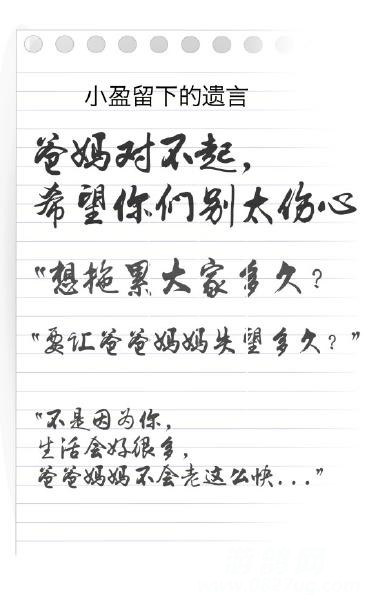 小盈留下的遗言
爸妈对不起，
希望你们别太伤心
“想拖累大家多久？
“要让爸爸妈妈失望多久？”
“不是因为你，
生活会好很多，
爸爸妈妈不会老这么快...”